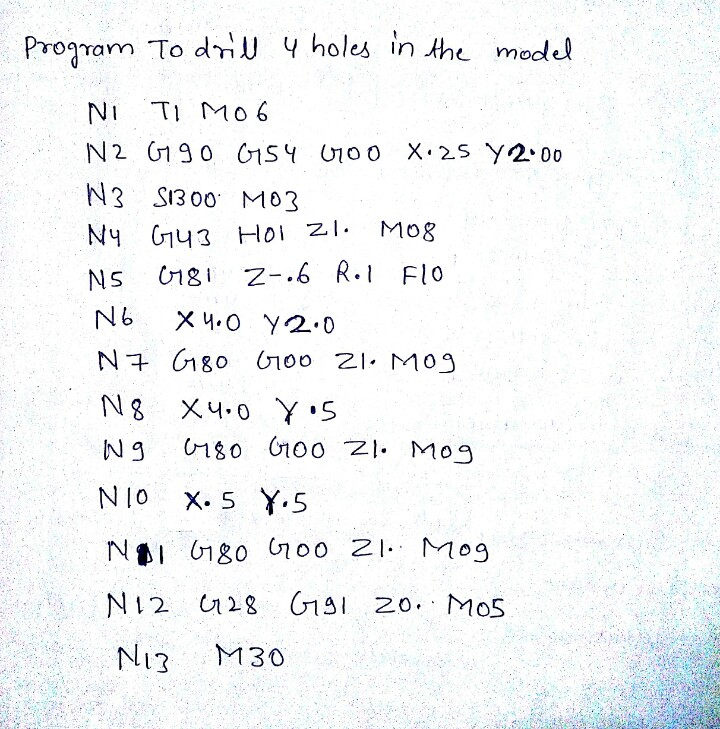 Program To drill 4 holes in the model
N1 T1 M06
N2 G90 G54 G00 X.25 Y2.00
N3 S1300 M03
N4 G43 H01 Z1. M08
N5 G81 Z-.6 R.1 F10
N6 X4.0 Y2.0
N7 G80 G00 Z1. M09
N8 X4.0 Y.5
N9 G80 G00 Z1. M09
N10 X.5 Y.5
N11 G80 G00 Z1. M09
N12 G28 G91 Z0. M05
N13 M30